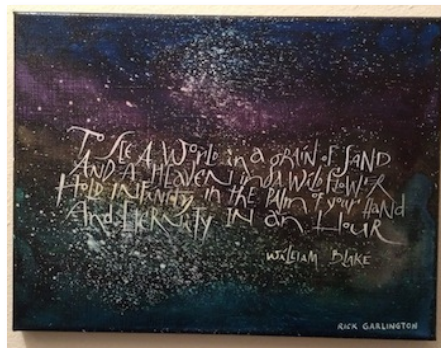 To See A World in a grain of Sand
And A Heaven in a Wild Flower
Hold Infinity in the palm of your Hand
And Eternity in an Hour
William Blake
Rick Garlington